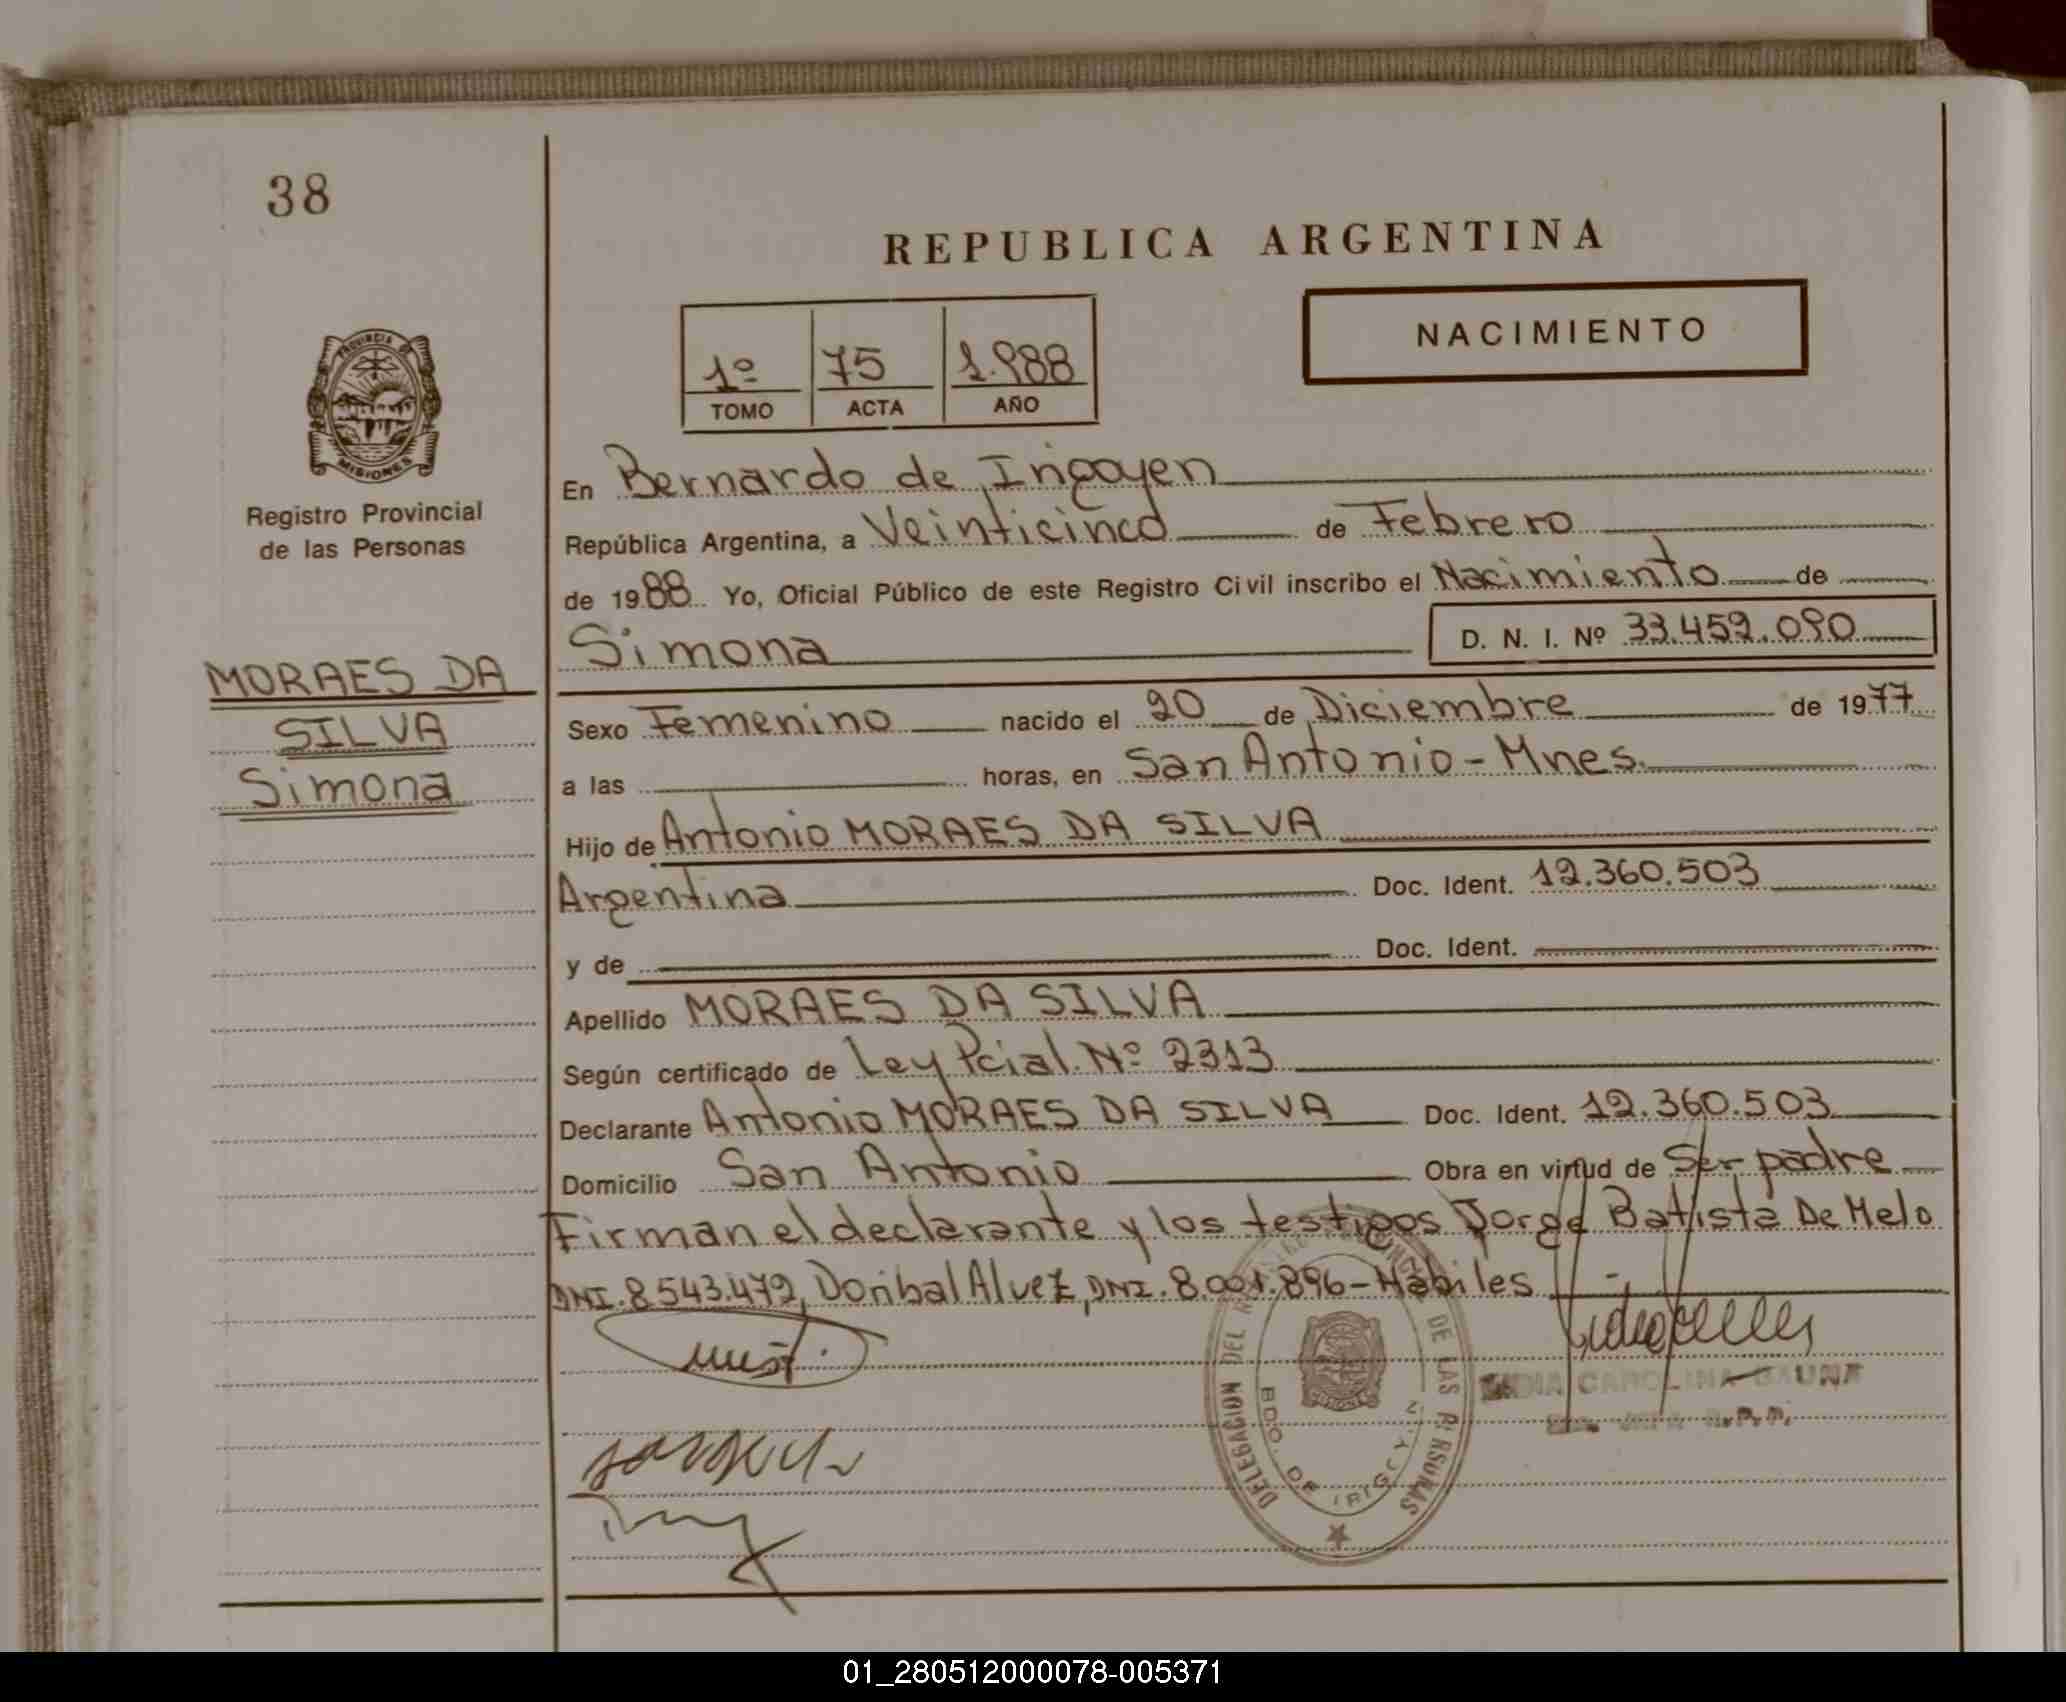 38
REPUBLICA ARGENTINA
NACIMIENTO
1º 75 1.988
TOMO ACTA AÑO
PROVINCIA DE
MISIONES
Registro Provincial
de las Personas
MORAES DA
SILVA
Simona
En Bernardo de Irigoyen
República Argentina, a Veinticinco de Febrero
de 1988 Yo, Oficial Público de este Registro Civil inscribo el Nacimiento de
Simona D. N. I. Nº 33.459.090
Sexo Femenino nacido el 20 de Diciembre de 1977
a las horas, en San Antonio - Mnes.
Hijo de Antonio MORAES DA SILVA
Argentina Doc. Ident. 12.360.503
y de Doc. Ident.
Apellido MORAES DA SILVA
Según certificado de Ley Pcial. Nº 2313
Declarante Antonio MORAES DA SILVA Doc. Ident. 12.360.503
Domicilio San Antonio Obra en virtud de Ser padre
Firman el declarante y los testigos Jorge Batista De Melo
DNI. 8.543.472, Doribal Alvez, DNI. 8.001.896 - Hábiles
DELEGACION DEL DE LAS PERSONAS
BDO. DE IRIGOYEN
CAROLINA GAUNA
01_280512000078-005371